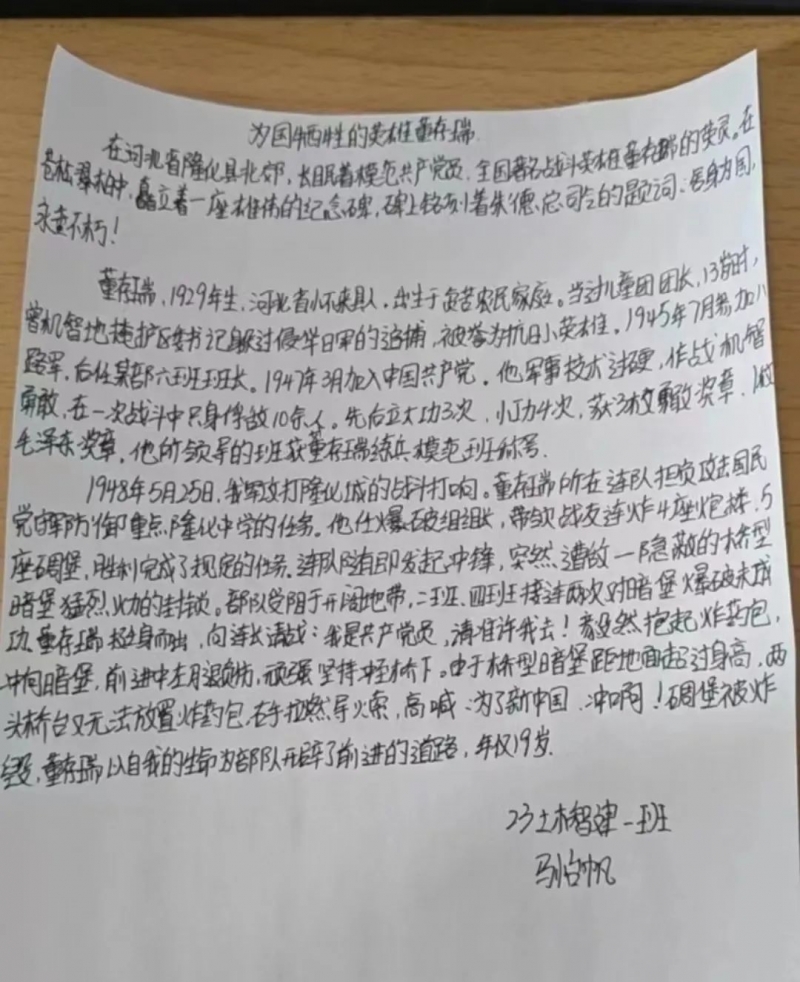 为国牺牲的英雄董存瑞
在河北省隆化县北郊，长眠着模范共产党员、全国著名战斗英雄董存瑞的英灵。在
苍松翠柏中，矗立着一座雄伟的纪念碑，碑上铭刻着朱德总司令的题词、舍身为国，
永垂不朽！
董存瑞，1929年生，河北省怀来县人，出生于贫苦农民家庭。当过儿童团团长，13岁时，
曾机智地掩护区委书记躲过侵华日军的追捕，被誉为抗日小英雄。1945年7月参加八
路军，后任某部六班班长。1947年3月加入中国共产党。他军事技术过硬，作战机智
勇敢，在一次战斗中只身俘敌10余人。先后立大功3次、小功4次，获3枚勇敢奖章、1枚
毛泽东奖章，他所领导的班获董存瑞练兵模范班称号.
1948年5月25日，我军攻打隆化城的战斗打响。董存瑞所在连队担负攻击国民
党守军防御重点隆化中学的任务。他任爆破组组长，带领战友连炸4座炮楼、5
座碉堡，胜利完成了规定的任务。连队随即发起冲锋，突然遭敌一隐蔽的桥型
暗堡猛烈火力的封锁。部队受阻于开阔地带，二班、四班接连两次对暗堡爆破未成
功，董存瑞挺身而出，向连长请战：我是共产党员，请准许我去！毅然抱起炸药包，
冲向暗堡，前进中左腿负伤，顽强坚持冲至桥下。由于桥型暗堡距地面超过身高，两
头桥台又无法放置炸药包，右手拉燃导火索，高喊：为了新中国，冲啊！碉堡被炸
毁，董存瑞以自我的生命为部队开辟了前进的道路，年仅19岁.
23土木智建一班
马怡帆